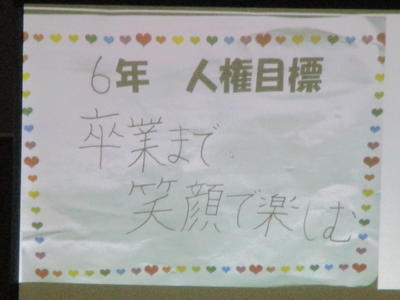 6年 人権目標
卒業まで
笑顔で楽しむ